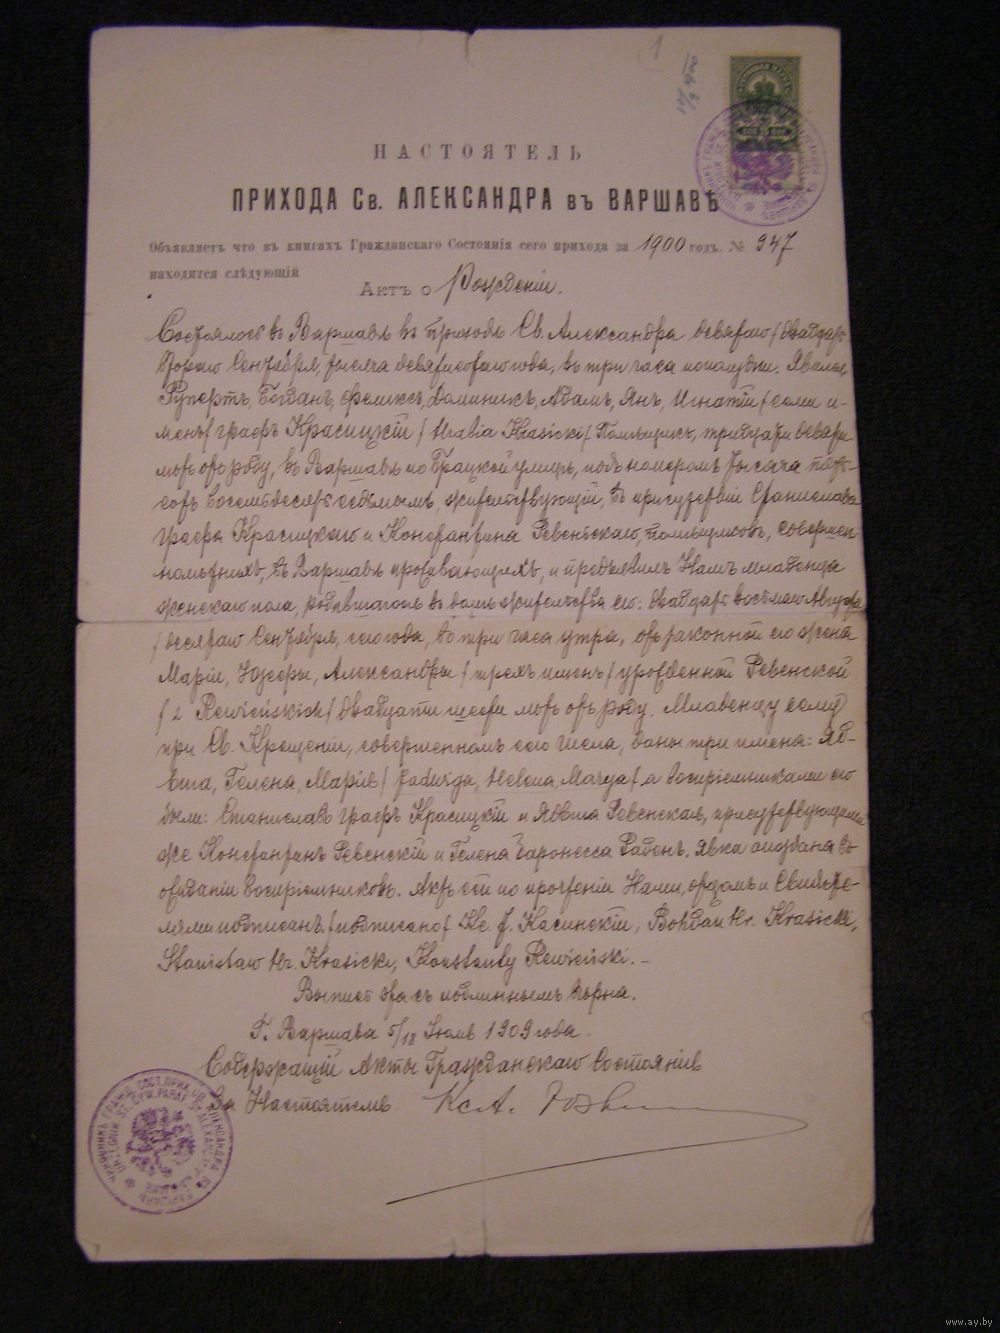 НАСТОЯТЕЛЬ
ПРИХОДА Св. АЛЕКСАНДРА въ ВАРШАВѢ
Объявляетъ что въ книгахъ Гражданскаго Состоянія сего прихода за 1900 годъ. № 947
находится слѣдующій
Актъ о Рожденіи.
Состоялось въ Варшавѣ въ приходѣ Св. Александра девятаго / двадцать
втораго Сентября, тысяча девятисотаго года, въ три часа пополудни. Явился
Рупертъ, Богданъ, Феликсъ, Доминикъ, Адамъ, Янъ, Игнатій / семи и-
менъ / графъ Красицкій / Hrabia Krasicki / Помѣщикъ, тридцати девяти
лѣтъ отъ роду, въ Варшавѣ по Брацкой улицѣ, подъ номеромъ тысяча пять-
сотъ восемьдесятъ седьмымъ, жительствующій, въ присутствіи Станислава
графа Красицкаго и Константина Ревенскаго, помѣщиковъ, совершен-
нолѣтнихъ, въ Варшавѣ проживающихъ, и предъявилъ Намъ младенца
женскаго пола, родившагося въ домѣ жительства его: двадцать восьмаго Августа
/ десятаго Сентября, сего года, въ три часа утра, отъ законной его жены
Маріи, Юзефы, Александры / трехъ именъ / урожденной Ревенской
/ z Rewieńskich / двадцати шести лѣтъ отъ роду. Младенцу сему
при Св. Крещеніи, совершенномъ сего числа, даны три имена: Яд-
вига, Гелена, Марія / Jadwiga, Helena, Marya / а воспріемниками его
были: Станиславъ графъ Красицкій и Ядвига Ревенская, присутствующими
же Константинъ Ревенскій и Гелена Баронесса Раденъ. Явка опоздана въ
ожиданіи воспріемниковъ. Актъ сей по прочтеніи Нами, отцомъ и Свидѣте-
лями подписанъ / подписано / Кс. Касинскій, Bohdan Hr. Krasicki,
Stanisław Hr. Krasicki, Konstanty Rewieński. –
Выпись эта съ подлиннымъ вѣрна.
Г. Варшава 5/18 1909 года.
Содержащій Акты Гражданскаго Состоянія
За Настоятеля Кс. А.
www.ay.by